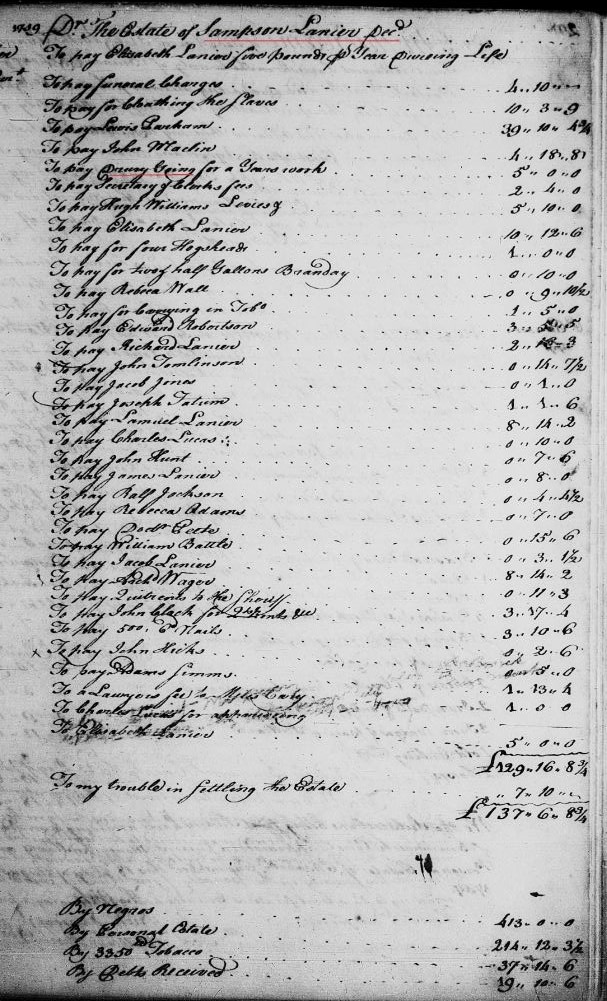 1749 Dr. The Estate of Sampson Lanier Decd.
To pay Elisabeth Lanier five pounds pr Year Dureing Life
To pay funeral Charges 4 .. 10 ..
To pay for Cloathing the Slaves 10 .. 3 .. 9
To pay Lewis Parham 39 .. 10 .. 4 3/4
To pay John Maclin 4 .. 18 .. 8
To pay Drury Going for a Years work 5 .. 0 .. 0
To pay Secretary & Clerks fees 2 .. 4 .. 0
To pay Hugh Williams Levies 5 .. 10 .. 0
To pay Elisabeth Lanier 10 .. 12 .. 6
To pay for four Hogsheads 1 .. 0 .. 0
To pay for two & half Gallons Brandy 0 .. 10 .. 0
To pay Rebeca Wall 0 .. 9 .. 10 1/2
To pay for Carrying in Tobo. 1 .. 5 .. 0
To pay Edward Robertson 3 .. 5 .. 5
To pay Richard Lanier 2 .. 16 .. 3
To pay John Tomlinson 0 .. 14 .. 7 1/2
To pay Jacob Jones 0 .. 1 .. 0
To pay Joseph Tatum 1 .. 1 .. 6
To pay Lamuel Lanier 8 .. 14 .. 2
To pay Charles Lucas 0 .. 10 .. 0
To pay John Hunt 0 .. 7 .. 6
To pay James Lanier 0 .. 8 .. 0
To pay Ralf Jackson 0 .. 4 .. 4 1/2
To pay Rebecca Adams 0 .. 7 .. 0
To pay Doctr.
To pay William Battle 0 .. 15 .. 6
To pay Jacob Lanier 0 .. 3 .. 1 1/2
To pay Wager 8 .. 14 .. 2
To pay Quitrents to the Sheriff 0 .. 11 .. 3
To pay John Clack for 3 .. 17 .. 4
To pay 500. 6d Nails 3 .. 10 .. 6
To pay John Hicks 0 .. 2 .. 6
To pay Adams Simms 0 .. 5 .. 0
To a Lawyers fee to 1 .. 13 .. 4
To Charles Lucas for appraiseing 1 .. 0 .. 0
To Elisabeth Lanier 5 .. 0 .. 0
£129 .. 16 .. 8 3/4
To my trouble in settling the Estate 7 .. 10 ..
£137 .. 6 .. 8 3/4
By Negros 413 .. 0 .. 0
By Personal Estate 214 .. 12 .. 3 1/2
By 3350 Tobacco 37 .. 14 .. 6
By Debts Received 19 .. 10 .. 6